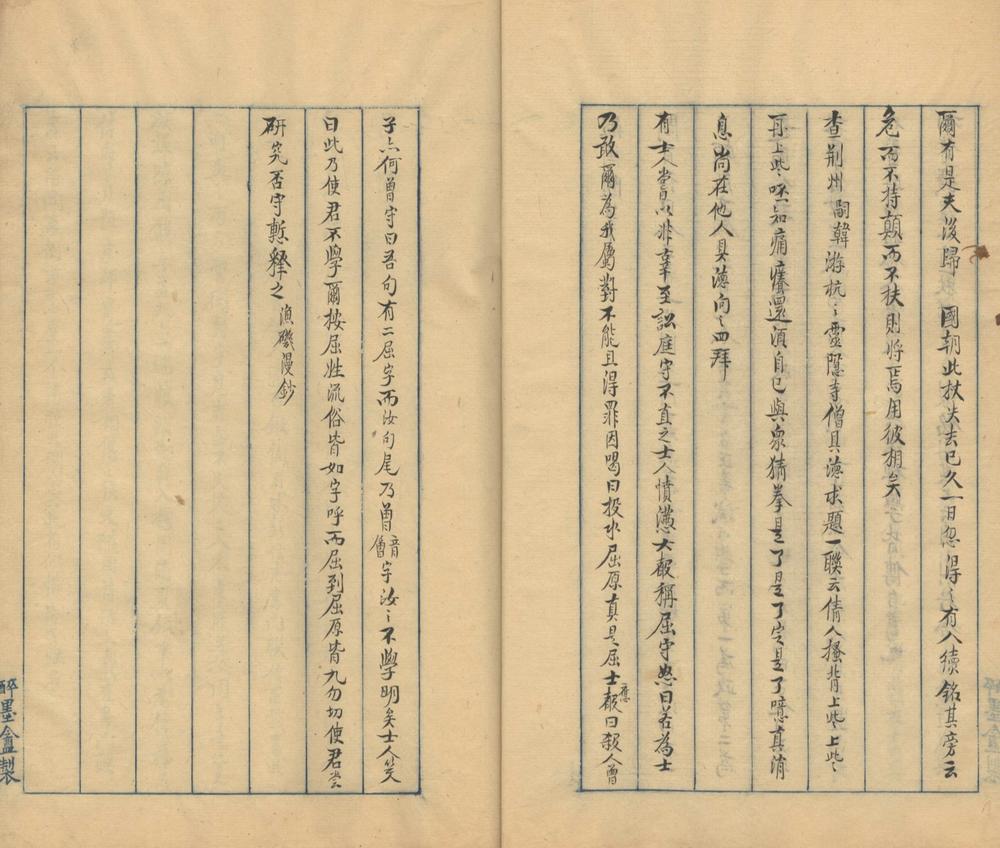 爾有是夫後歸　國朝此杖失去已久一日忽得之有人續銘其旁云
危而不持顛而不扶則將焉用彼相矣
查荆州嗣韓游杭〻靈隱寺僧具牋求題一聯云倩人搔背上些〻上些〻
再上些〻呸知痛癢還須自己與衆猜拳是了是了定是了噫真消
息尚在他人具牋向之四拜
有士人嘗以非辜至訟庭守不直之士人憤懣大敷稱屈守怒曰若為士
乃敢爾為我屬對不能且得罪因喝曰投水屈原真是屈士應敷曰殺人曾
子亼何曾守曰吾句有二屈字而汝句尾乃曾音層字汝〻不學明矣士人笑
曰此乃使君不學爾按屈姓流俗皆如字呼而屈到屈原皆九勿切使君嘗
研究否守慙釋之漁磯漫鈔
醉墨盦製